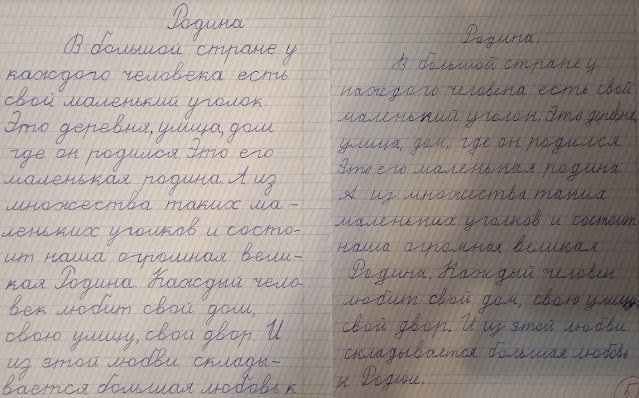 Родина
В большой стране у
каждого человека есть
свой маленький уголок.
Это деревня, улица, дом
где он родился. Это его
маленькая родина. А из
множества таких ма-
леньких уголков и состо-
ит наша огромная вели-
кая Родина. Каждый чело-
век любит свой дом,
свою улицу, свой двор. И
из этой любви склады-
вается большая любовь к
Родина.
В большой стране у
каждого человека есть свой
маленький уголок. Это деревня,
улица, дом, где он родился
Это его маленькая родина.
А из множества таких
маленьких уголков и состоит
наша огромная великая
Родина. Каждый человек
любит свой дом, свою улицу,
свой двор. И из этой любви
складывается большая любовь
к Родине.
5